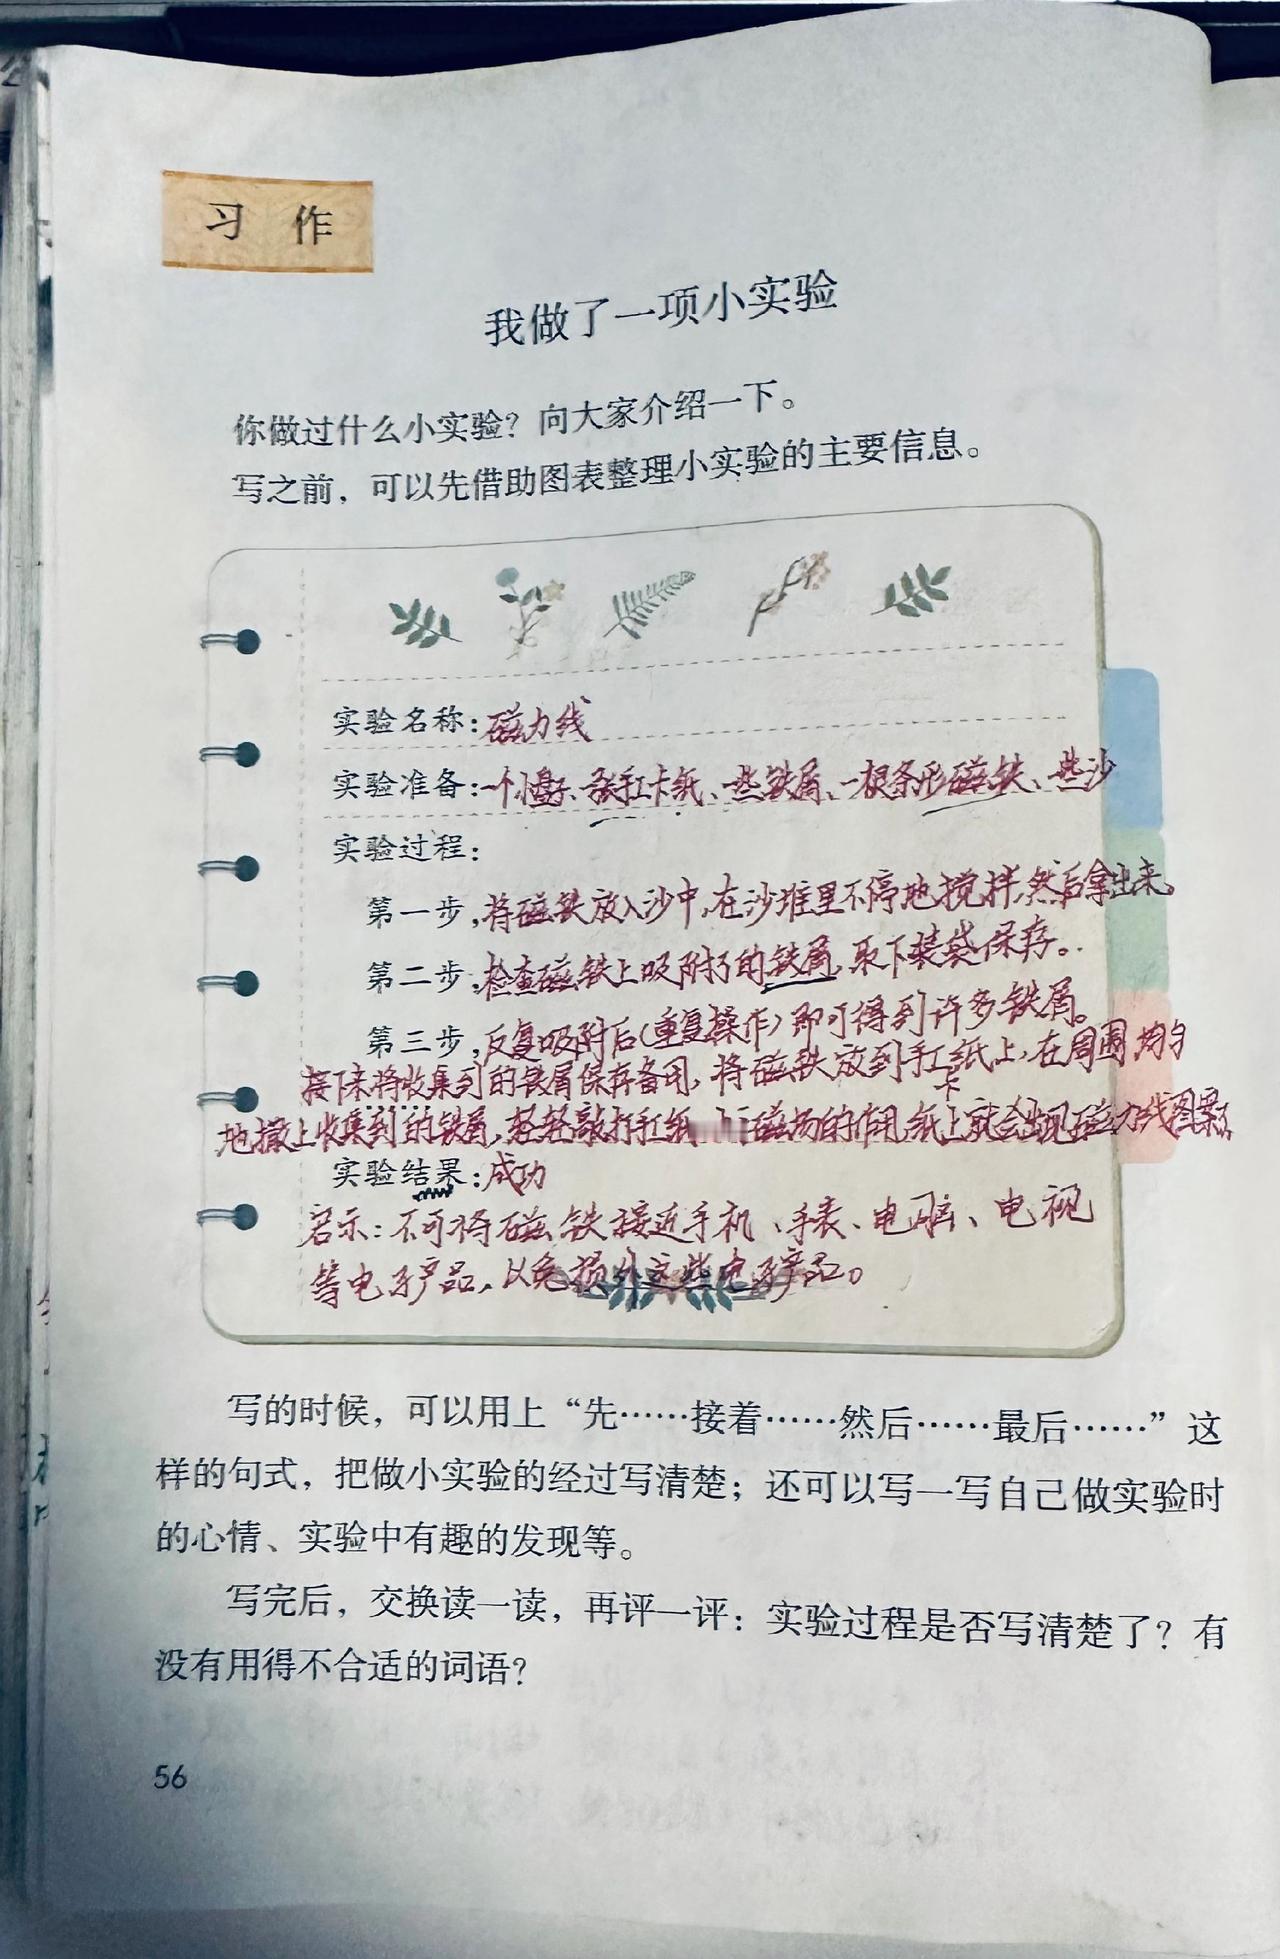 习 作
我做了一项小实验
你做过什么小实验？向大家介绍一下。
写之前，可以先借助图表整理小实验的主要信息。
实验名称：磁力线
实验准备：一个小盘子、一张手工卡纸、一些铁屑、一根条形磁铁、一些沙
实验过程：
第一步，将磁铁放入沙中，在沙堆里不停地搅拌，然后拿出来。
第二步，检查磁铁上吸附的铁屑，取下装袋保存。
第三步，反复吸附后（重复操作）即可得到许多铁屑。
接下来将收集到的铁屑保存备用，将磁铁放到手工卡纸上，在周围均匀
地撒上收集到的铁屑，轻轻敲打手工纸 磁场的作用，纸上就会出现磁力线图案
实验结果：成功
启示：不可将磁铁接近手机、手表、电脑、电视
等电子产品，以免损坏这些电子产品。
写的时候，可以用上“先……接着……然后……最后……”这
样的句式，把做小实验的经过写清楚；还可以写一写自己做实验时
的心情、实验中有趣的发现等。
写完后，交换读一读，再评一评：实验过程是否写清楚了？有
没有用得不合适的词语？
56